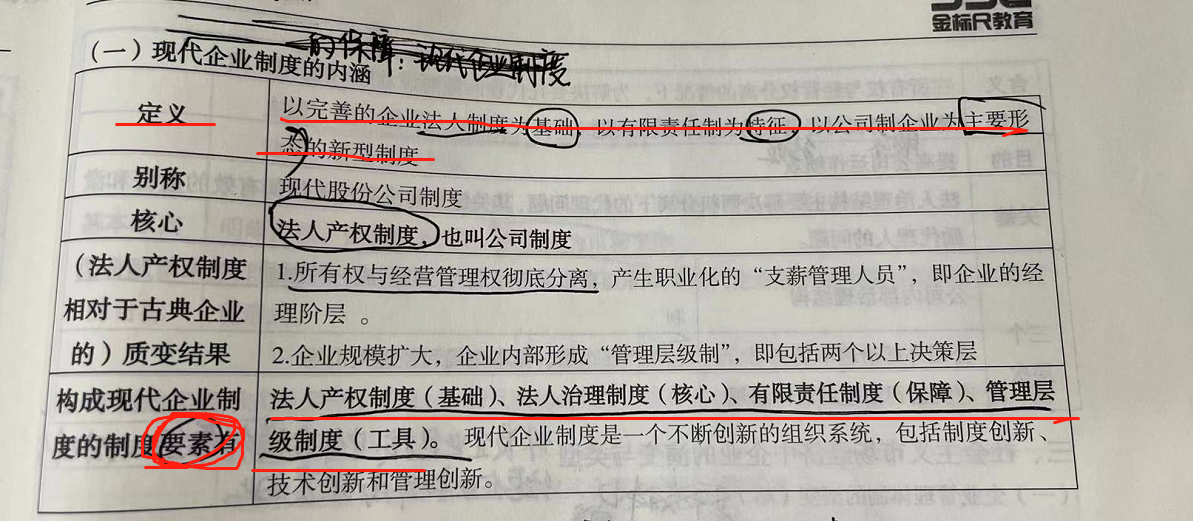 金标尺教育
的保障：现代企业制度
（一）现代企业制度的内涵
定义
以完善的企业法人制度为基础，以有限责任制为特征，以公司制企业为主要形
态的新型制度
别称
现代股份公司制度
核心
法人产权制度，也叫公司制度
（法人产权制度
相对于古典企业
的）质变结果
1.所有权与经营管理权彻底分离，产生职业化的“支薪管理人员”，即企业的经
理阶层 。
2.企业规模扩大，企业内部形成“管理层级制”，即包括两个以上决策层
构成现代企业制
度的制度要素有
法人产权制度（基础）、法人治理制度（核心）、有限责任制度（保障）、管理层
级制度（工具）。 现代企业制度是一个不断创新的组织系统，包括制度创新、
技术创新和管理创新。